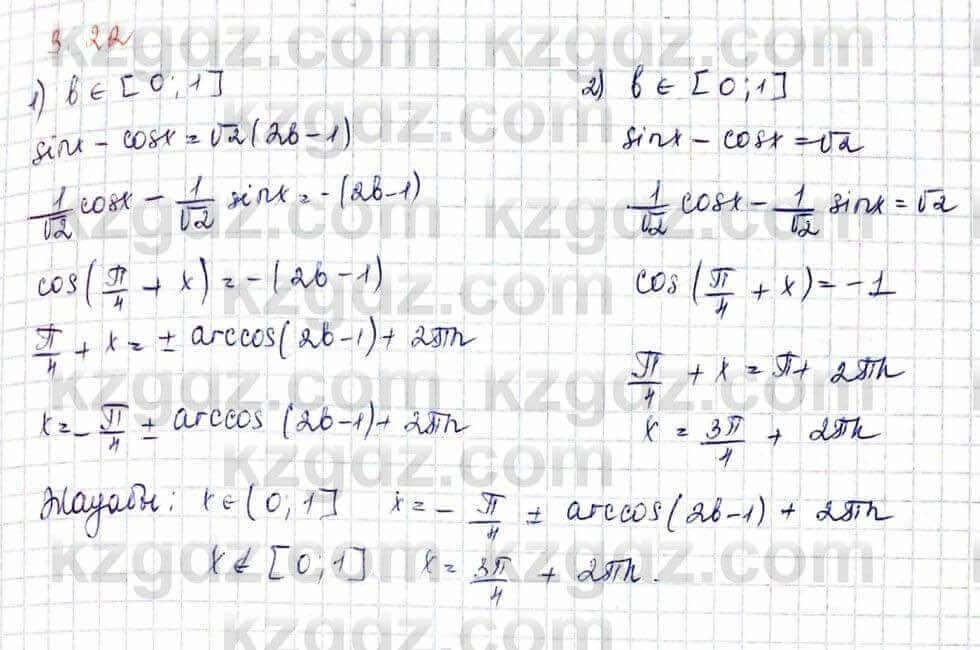 3. 22
1) b ∈ [0; 1]
sinx - cosx = √2(2b-1)
1/√2 cosx - 1/√2 sinx = -(2b-1)
cos(π/4 + x) = -(2b-1)
π/4 + x = ± arccos(2b-1) + 2πn
x = -π/4 ± arccos(2b-1) + 2πn
2) b ∈ [0; 1]
sinx - cosx = √2
1/√2 cosx - 1/√2 sinx = √2
cos(π/4 + x) = -1
π/4 + x = π + 2πn
x = 3π/4 + 2πn
Жауабы: x ∈ (0; 1] x = -π/4 ± arccos(2b-1) + 2πn
x ∉ [0; 1] x = 3π/4 + 2πn.
kzgdz.com